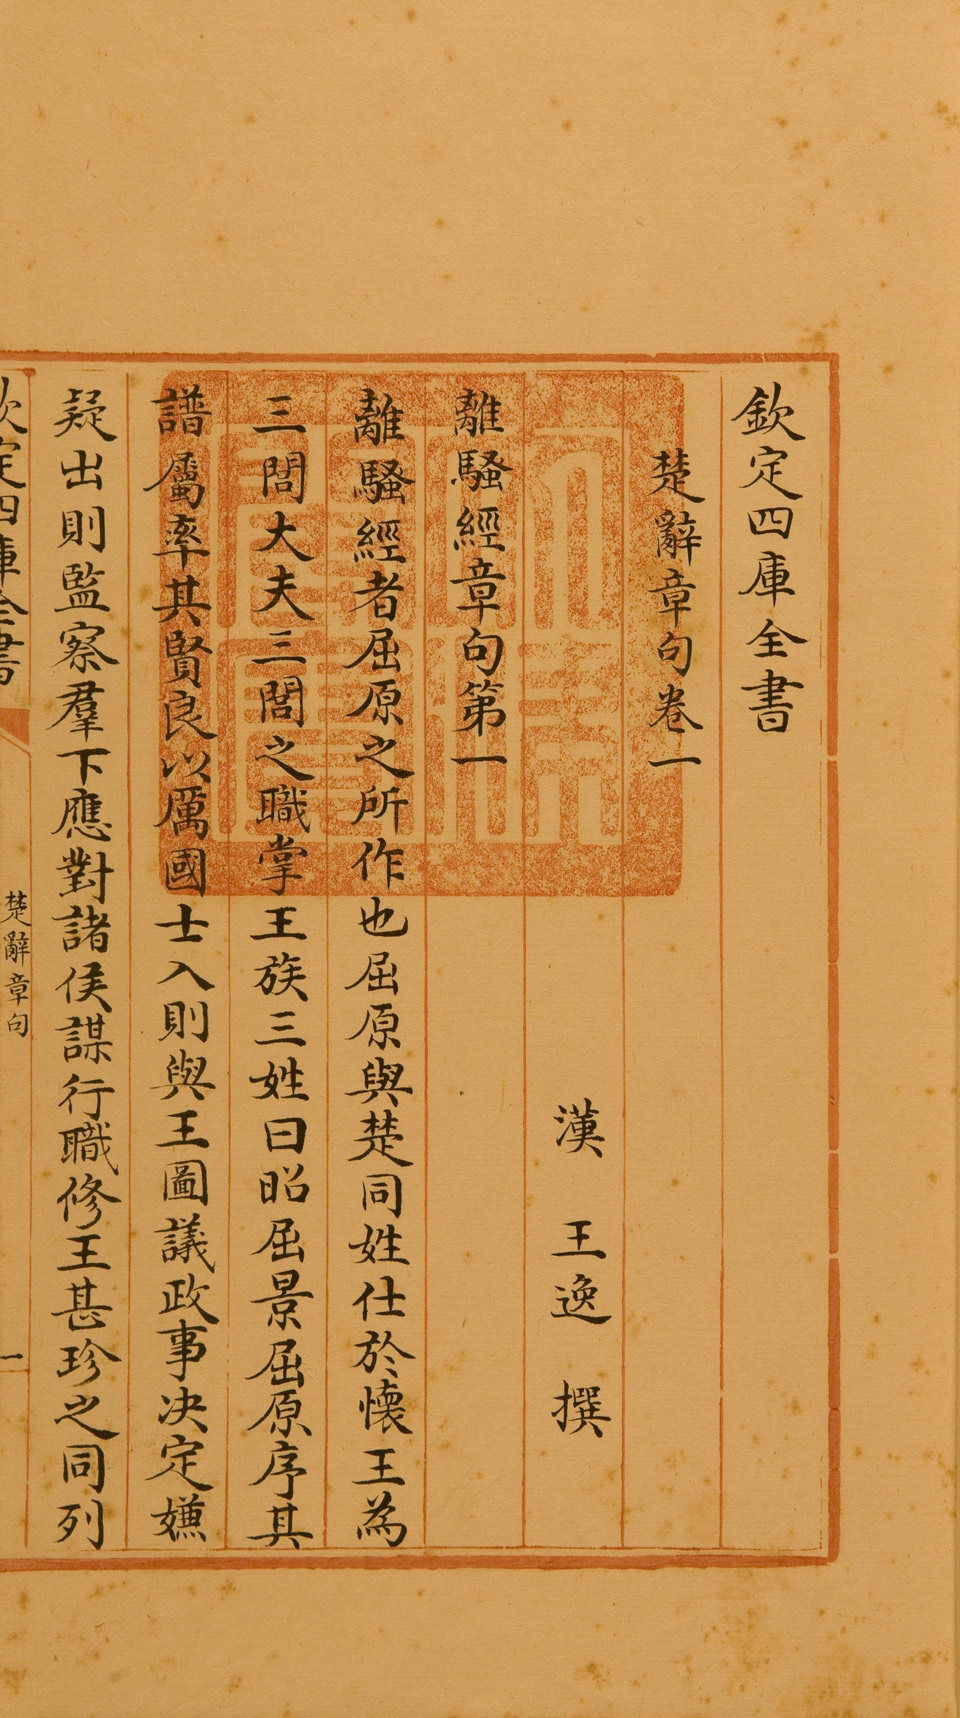 欽定四庫全書
楚辭章句卷一
漢 王逸 撰
離騷經章句第一
離騷經者屈原之所作也屈原與楚同姓仕於懷王為
三閭大夫三閭之職掌王族三姓曰昭屈景屈原序其
譜屬率其賢良以厲國士入則與王圖議政事决定嫌
疑出則監察羣下應對諸侯謀行職修王甚珍之同列
欽定四庫全書
楚辭章句
一